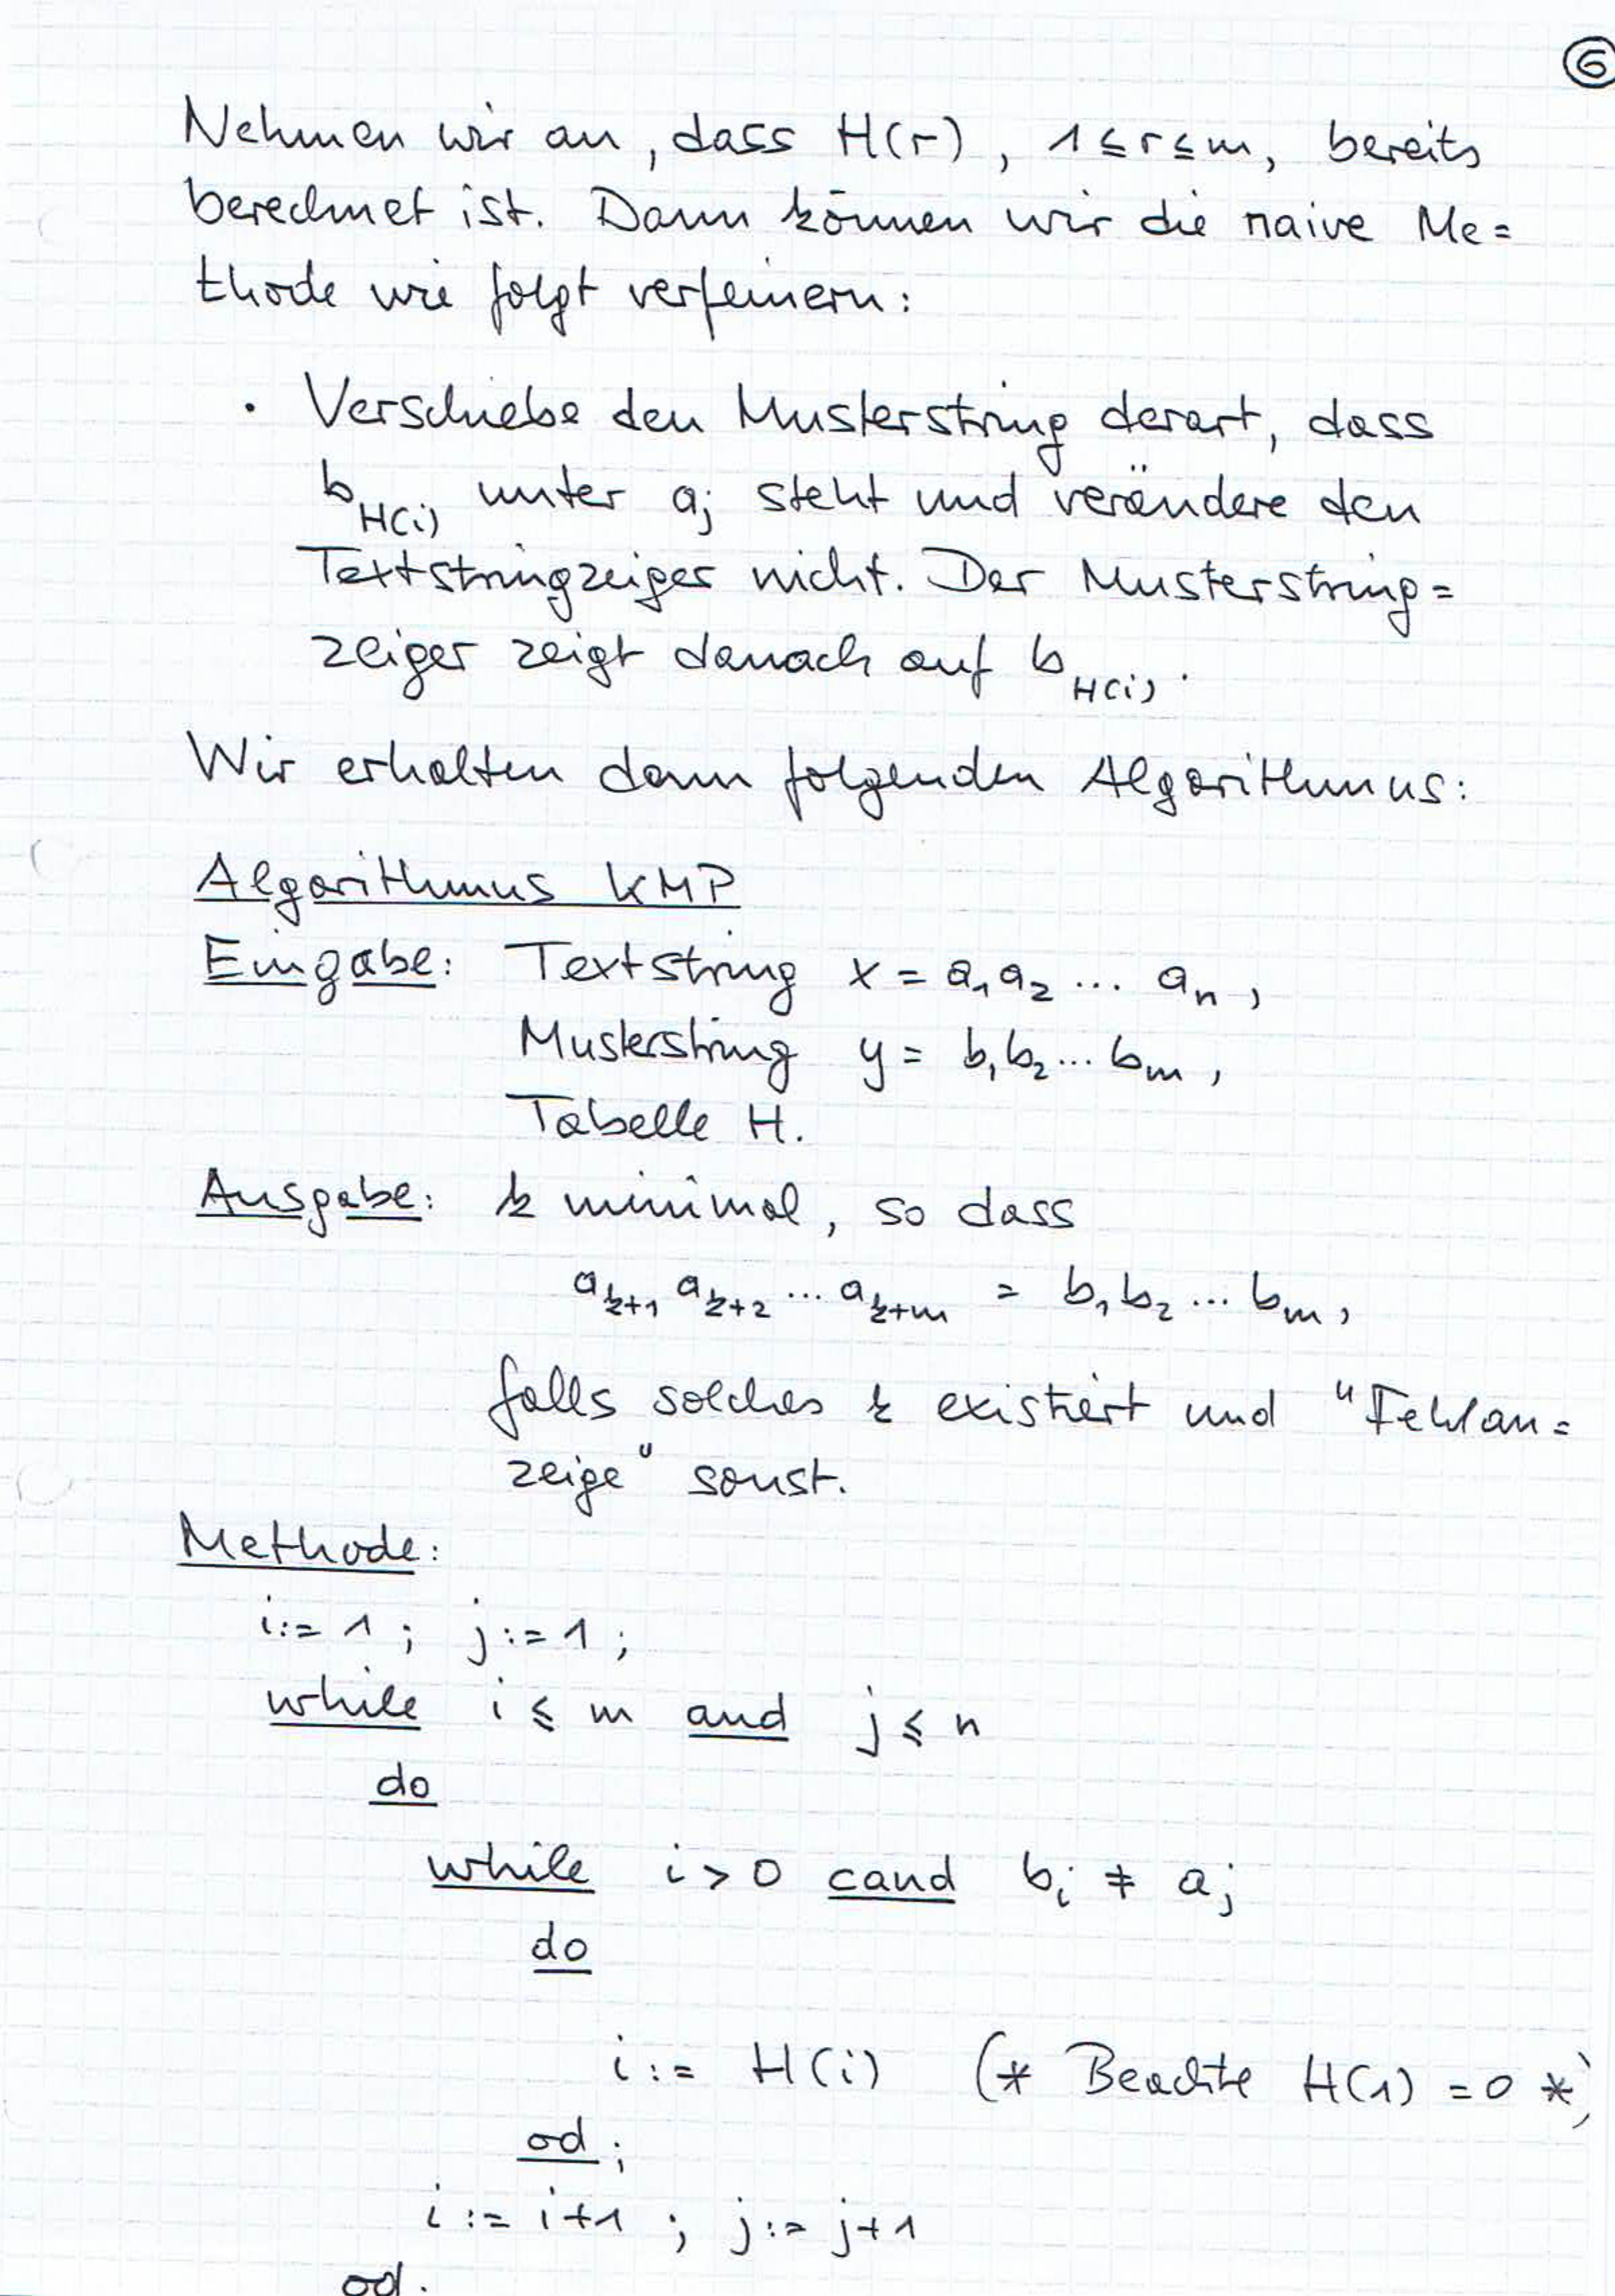 6
Nehmen wir an, dass H(r), 1 ≤ r ≤ m, bereits
berechnet ist. Dann können wir die naive Me=
thode wie folgt verfeinern:
· Verschiebe den Musterstring derart, dass
b_{H(i)} unter a_j steht und verändere den
Textstringzeiger nicht. Der Musterstring=
zeiger zeigt danach auf b_{H(i)}.
Wir erhalten dann folgenden Algorithmus:
Algorithmus KMP
Eingabe: Textstring x = a_1 a_2 ... a_n,
Musterstring y = b_1 b_2 ... b_m,
Tabelle H.
Ausgabe: k minimal, so dass
a_{k+1} a_{k+2} ... a_{k+m} = b_1 b_2 ... b_m,
falls solches k existiert und "Fehlan=
zeige" sonst.
Methode:
i := 1 ; j := 1 ;
while i ≤ m and j ≤ n
do
while i > 0 cand b_i ≠ a_j
do
i := H(i) (* Beachte H(1) = 0 *)
od ;
i := i+1 ; j := j+1
od.